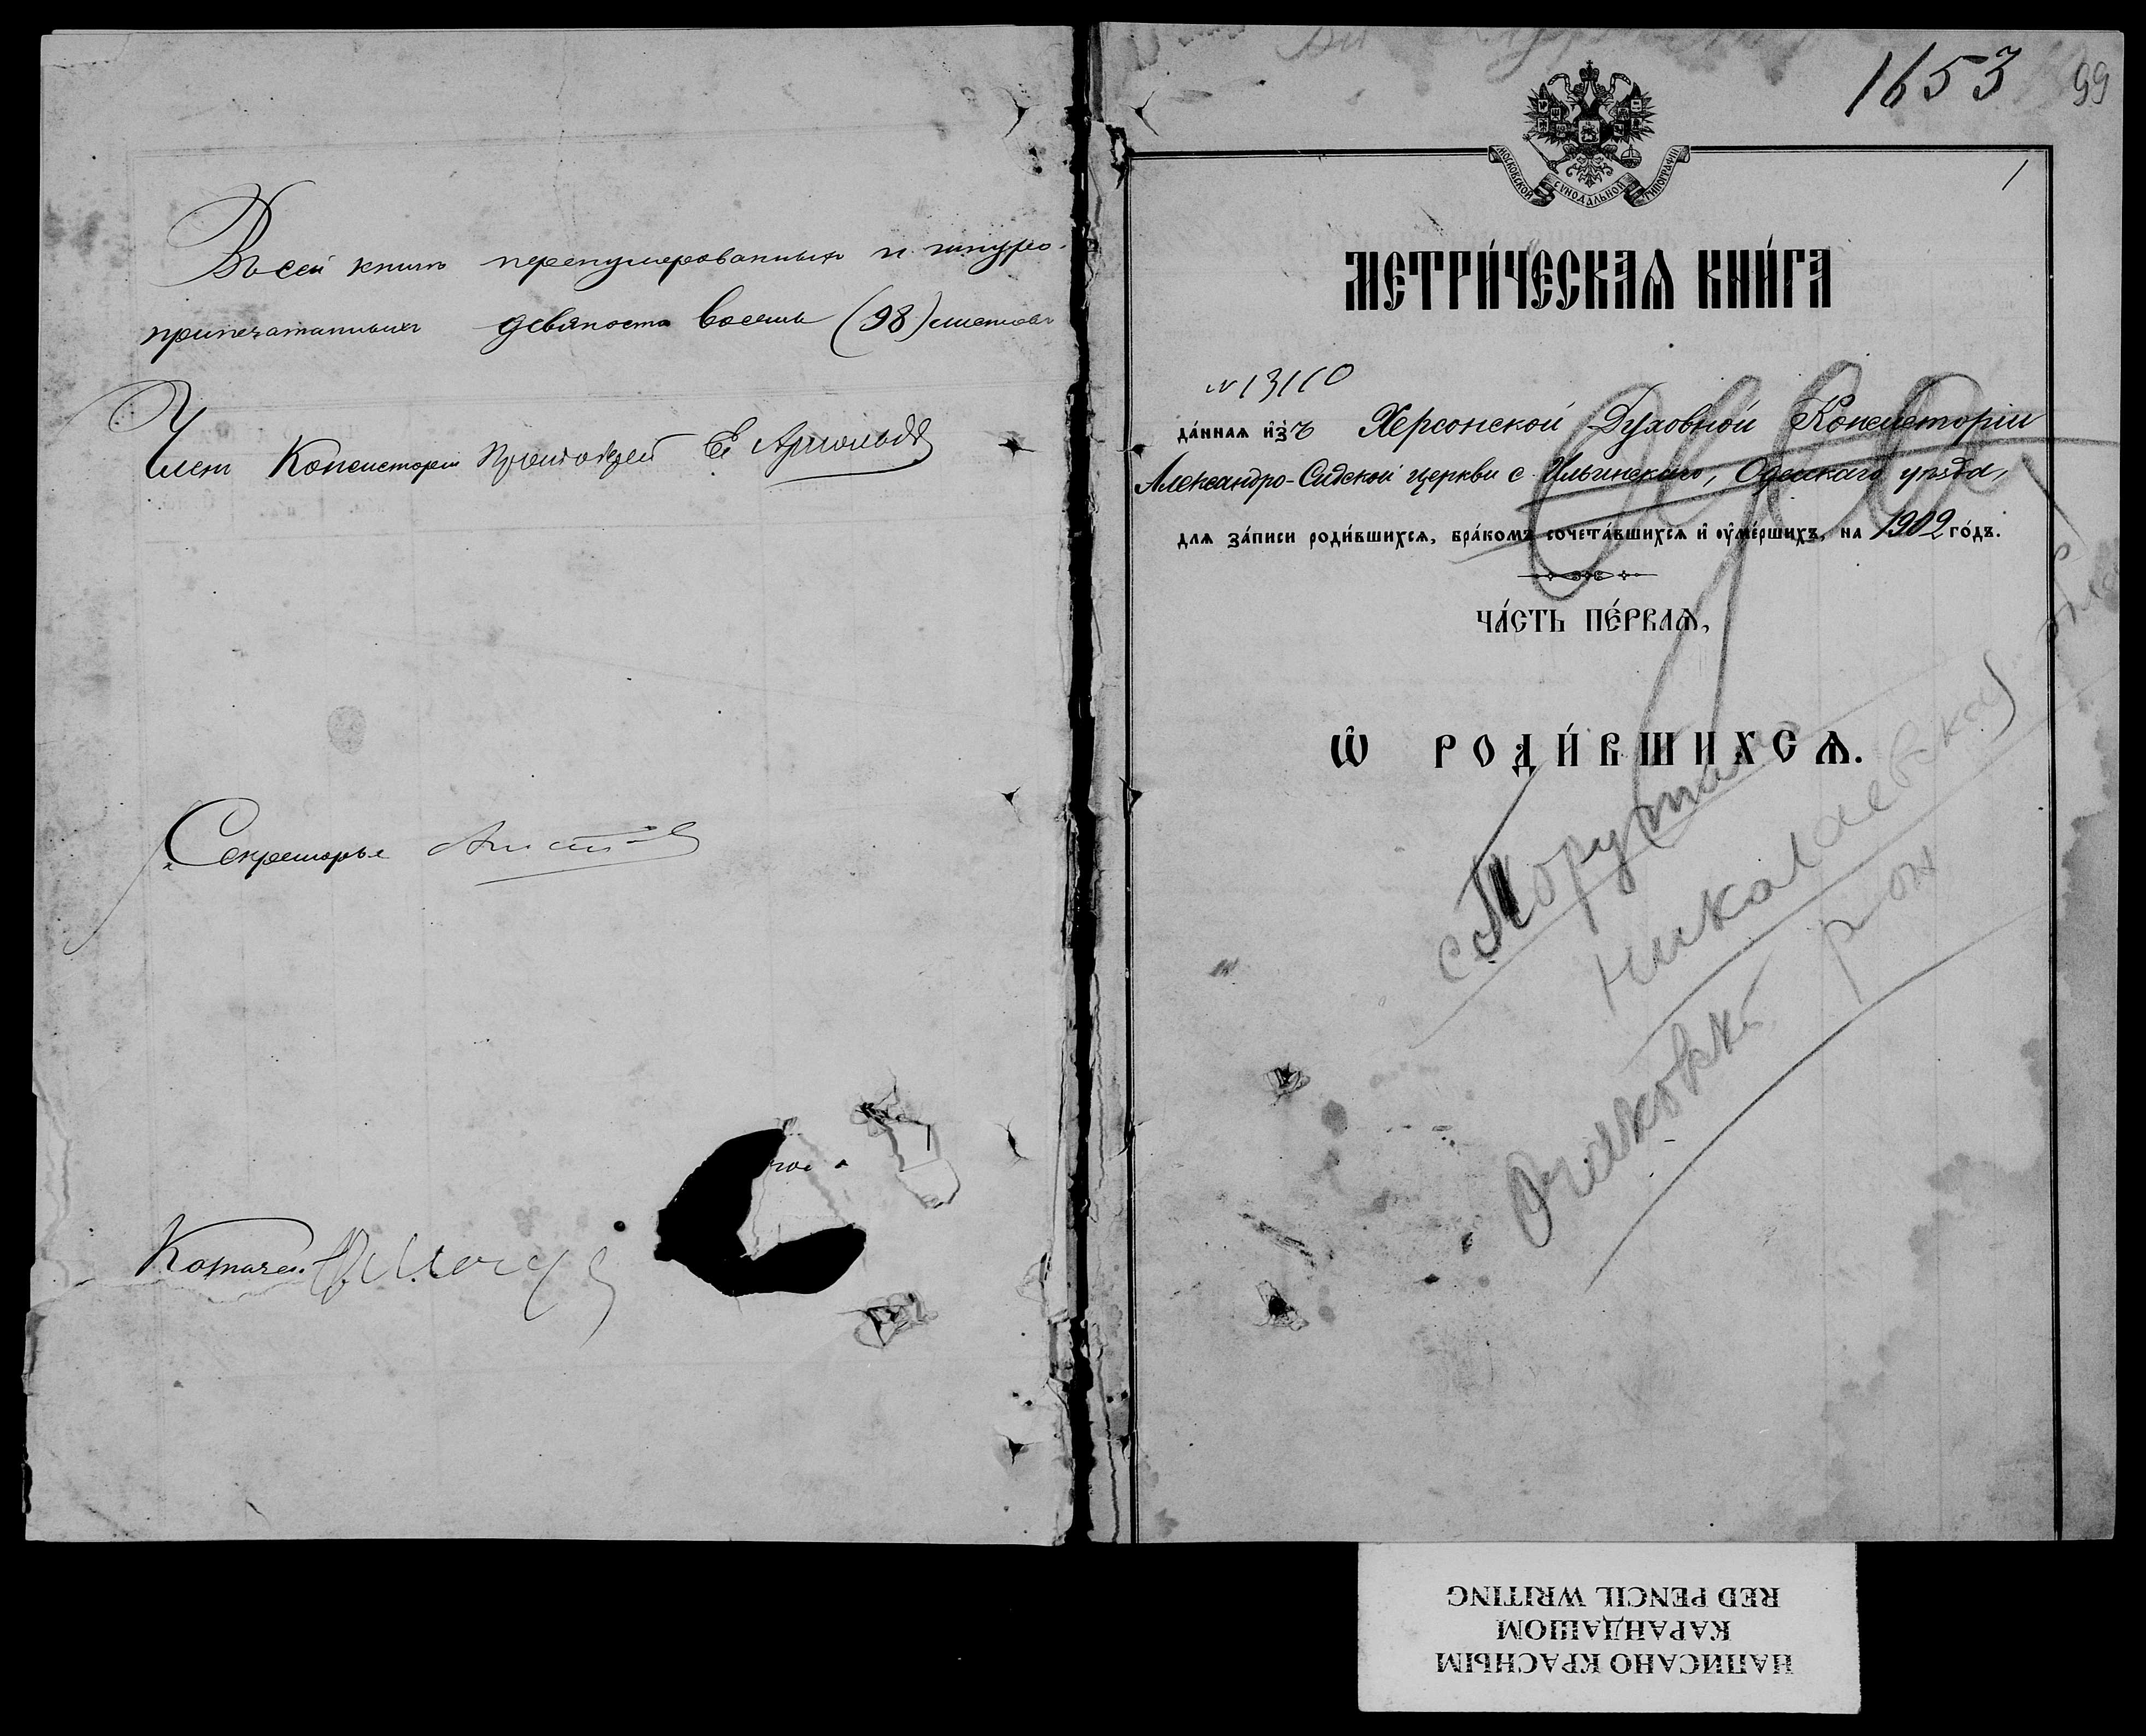 Въ сей книгѣ перенумерованныхъ и шнуро-
припечатанныхъ девяносто восемь (98) листовъ
Членъ Консисторіи Протоіерей
Секретарь
1653 99
1
МОСКОВСКОЙ СѴНОДАЛЬНОЙ ТИПОГРАФІИ
МЕТРИ́ЧЕСКАѦ КНИ́ГА
№ 13110
да́ннаѧ и҆зъ Херсонской Духовной Консисторіи
Александро- церкви с. Ильинскаго, Одесскаго уѣзда,
длѧ за́писи роди́вшихсѧ, бра́комъ сочета́вшихсѧ и҆ оу҆ме́ршихъ, на 1902 го́дъ.
ЧА́СТЬ ПЕ́РВАѦ,
Ѡ҆ РОДИ́ВШИХСѦ.
николаевская
р он
НАПИСАНО КРАСНЫМ
КАРАНДАШОМ
RED PENCIL WRITING